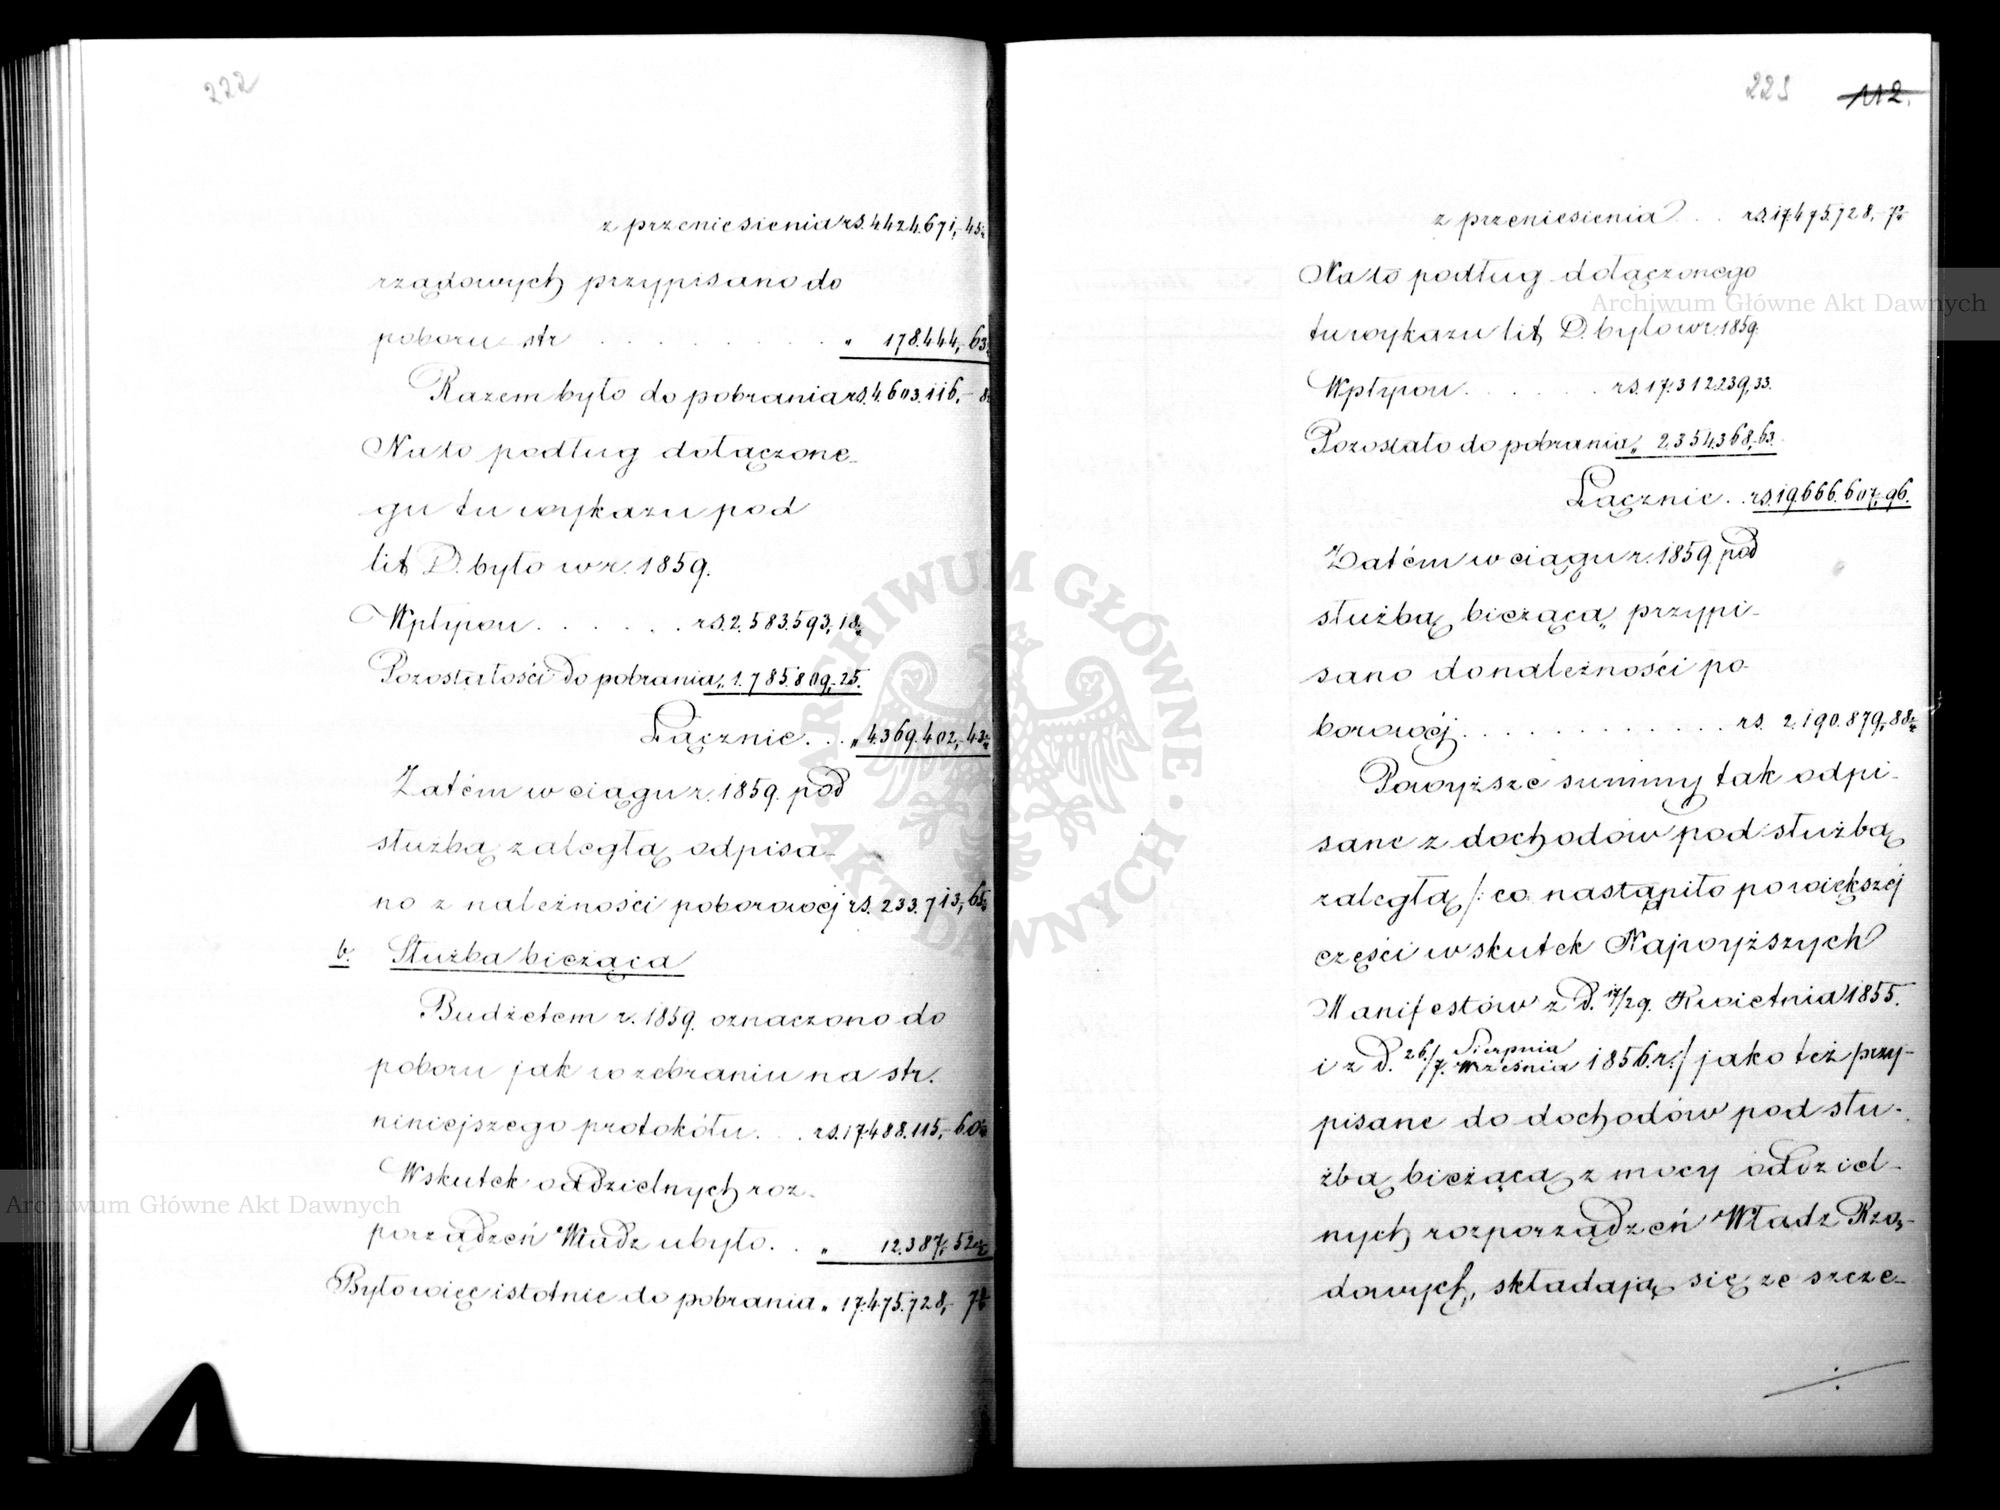 222
z przeniesienia rs. 4.424.671,-45
rządowych przypisano do
poboru str . . . . . . . . . . „ 178.444,-63
Razem było do pobrania rs. 4.603.116,-8
Na to podług dołączone-
go tu wykazu pod
lit D. było w r. 1859.
Wpływu . . . . . . . rs. 2.583.593,-18
Pozostałości do pobrania „ 1.785.809,-25.
Łącznie . . . „ 4.369.402,-43
Zatém w ciągu r. 1859. pod
służbą zaległą odpisa-
no z należności poborowéj rs. 233.713,-65
b. Służba bieżąca
Budżetem r. 1859. oznaczono do
poboru jak w zebraniu na str.
niniejszego protokółu . . . rs. 17.488.115,-60
Wskutek oddzielnych roz-
porządzeń Władz ubyło . . „ 12.387,-52
Było więc istotnie do pobrania „ 17.475.728,-7
223 112.
z przeniesienia . . rs. 17.475.728,-7
Na to podług dołączonego
tu wykazu lit D. było w r. 1859.
Wpływu . . . . . . . rs. 17.312.239,33.
Pozostało do pobrania „ 2.354.368,-63.
Łącznie . . rs. 19.666.607,-96.
Zatém w ciągu r. 1859. pod
służbą bieżącą przypi-
sano do należności po-
borowéj . . . . . . . . . . . . rs. 2.190.879,-88
Powyższe summy tak odpi-
sane z dochodów pod służbą
zaległą /: co nastąpiło po większéj
części wskutek Najwyższych
Manifestów z d. 17/29. Kwietnia 1855.
i z d. 26./7. Sierpnia Września 1856. r./ jako też przy-
pisane do dochodów pod słu-
żbą bieżącą z mocy oddziel-
nych rozporządzeń Władz Rzą-
dowych, składają się ze szcze-
./.
Archiwum Główne Akt Dawnych
Archiwum Główne Akt Dawnych
ARCHIWUM GŁÓWNE · AKT DAWNYCH ·